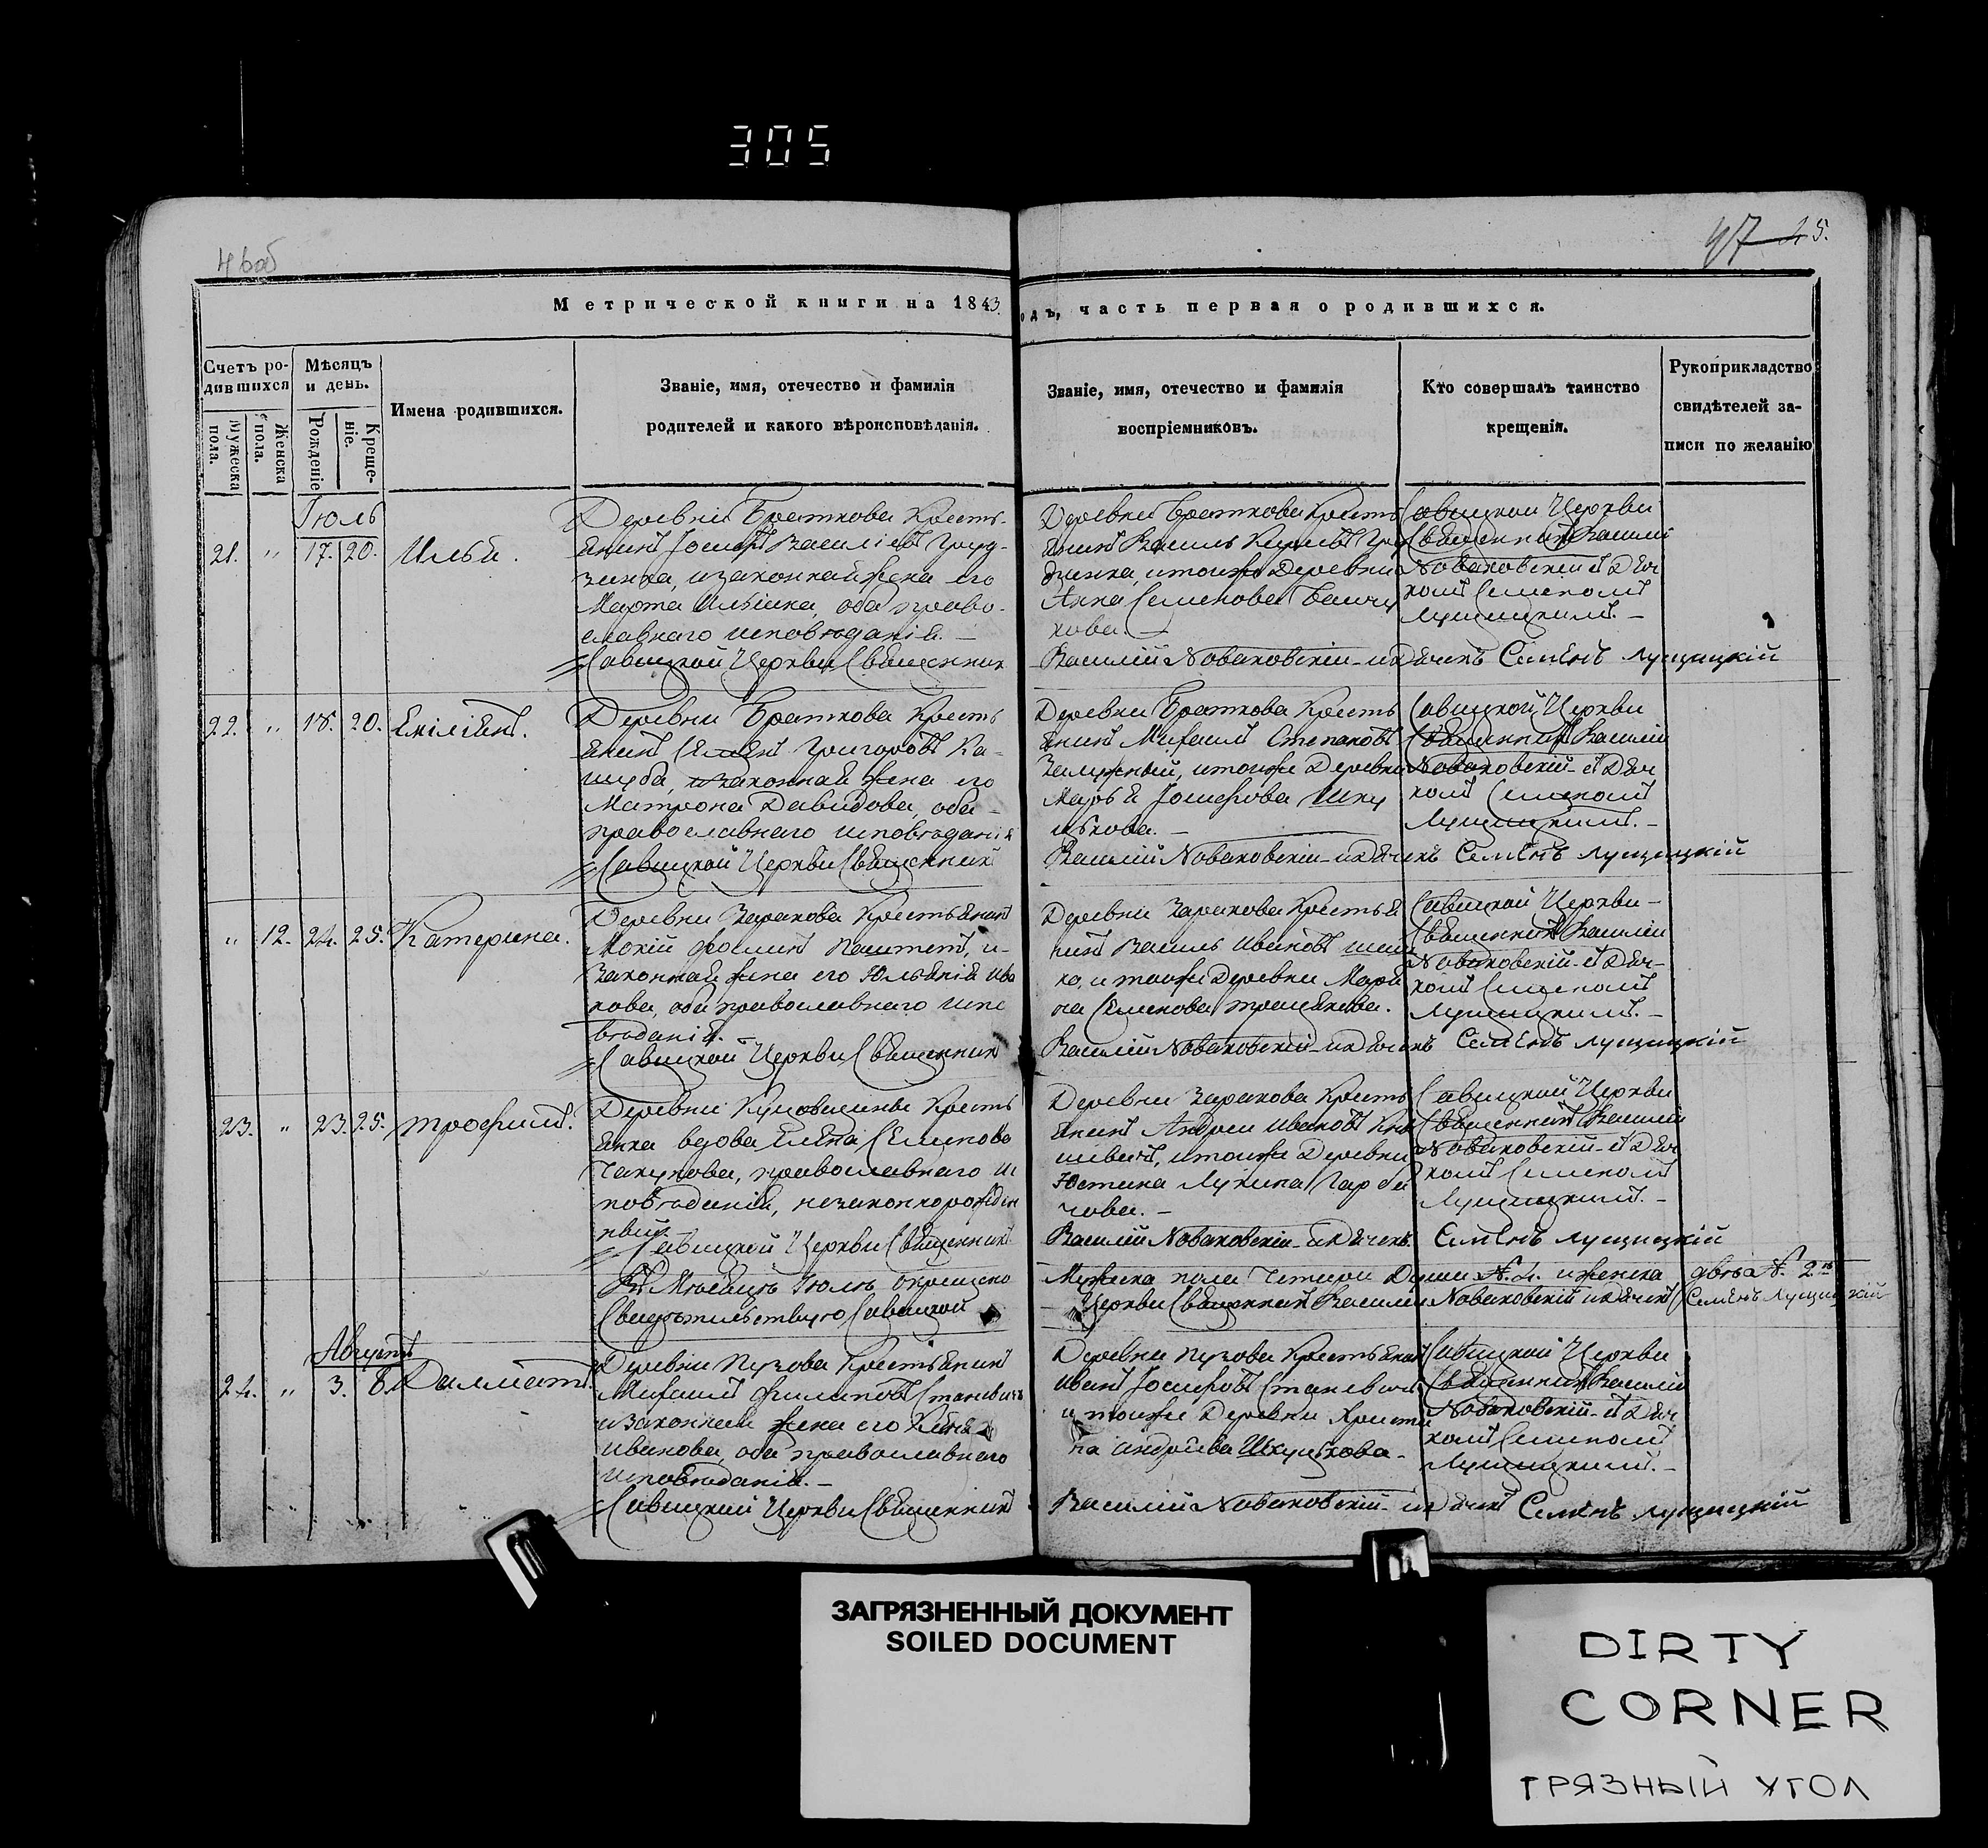 305
46об
47 45.
Метрической книги на 1843
одъ, часть первая о родившихся.
Счетъ ро-
дившихся
Мужеска пола.
Женска пола.
Мѣсяцъ
и день.
Рожденіе
Креще-
ніе.
Имена родившихся.
Званіе, имя, отечество и фамилія
родителей и какого вѣроисповѣданія.
Званіе, имя, отечество и фамилія
воспріемниковъ.
Кто совершалъ таинство
крещенія.
Рукоприкладство
свидѣтелей за-
писи по желанію
Іюль
21. " 17. 20. Илья.
Деревни Браткова Кресть-
янинъ Іосифъ Василіевъ
зинка, изаконная жена его
Марта Ильина, оба право-
славнаго исповѣданія. —
Савицкой Церкви Священник
Деревни Браткова Кресть
янинъ Василь
и тоиже Деревни
Анна Семенова
кова. —
Василій Новаковскій и Дячекъ Семёнъ Лущицкій
Савицкой Церкви
Священникъ Василій
Новаковскій съ Дяч
комъ Семеномъ
Лущицкимъ. —
22. " 18. 20. Емілиянъ.
Деревни Браткова Кресть
янинъ Семенъ Григоровъ Ка-
шуба, изаконная жена его
Матрона Давидова, оба
православнаго исповѣданія
Савицкой Церкви Священникъ
Деревни Браткова Кресть
янинъ Михаилъ Степановъ
Залужный, и тоиже Деревни
Марья Іосифова Шку
цькова. —
Василій Новаковскій и Дячекъ Семёнъ Лущицкій
Савицкой Церкви
Священникъ Василій
Новаковскій съ Дяч
комъ Семеномъ
Лущицкимъ. —
" 12. 24. 25. Катерина.
Деревни Заракова Крестьянинъ
Мокій Фоминъ, и
законная жена его Юльянія Ива
нова, оба православнаго испо
вѣданія. —
Савицкой Церкви Священник
Деревни Заракова Крестья
нинъ Василь Ивановъ
ко, и тоиже Деревни Марья
на Семенова
Василій Новаковскій и Дячекъ Семёнъ Лущицкій
Савицкой Церкви —
Священникъ Василій
Новаковскій съ Дяч-
комъ Семеномъ
Лущицкимъ. —
23. " 23. 25. Трофимъ.
Деревни Кресть
янка вдова Елена Семенова
православнаго ис
повѣданія, незаконнорожден
ный.
Савицкой Церкви Священникъ
Деревни Заракова Кресть
янинъ Андрей Ивановъ
и тоиже Деревни
Юстина Лукина Гарба
чова. —
Василій Новаковскій и Дячекъ. Семёнъ Лущицкій
Савицкой Церкви
Священникъ Василій
Новаковскій съ Дяч
комъ Семеномъ
Лущицкимъ. —
Въ Мѣсяцъ Іюль окрещено Мужеска пола Четыри Души №. 4. и женска двѣ №. 2
Свидѣтельствую Савицкой Церкви Священникъ Василій Новаковскій и Дячекъ Семёнъ Лущицкій
Августъ
24. " 3. 8. Далматъ.
Деревни Пузова Крестьянинъ
Михаилъ Филиповъ Станевичъ
изаконная жена его
Иванова, оба православнаго
исповѣданія. —
Савицкой Церкви Священникъ
Деревни Пузова Крестьянинъ
Иванъ Іосифовъ Станевичъ
и тоиже Деревни Христи
на Андреева Шкуцькова. —
Василій Новаковскій и Дячекъ Семёнъ Лущицкій
Савицкой Церкви
Священникъ Василій
Новаковскій съ Дяч
комъ Семеномъ
Лущицкимъ. —
ЗАГРЯЗНЕННЫЙ ДОКУМЕНТ
SOILED DOCUMENT
DIRTY
CORNER
ГРЯЗНЫЙ УГОЛ